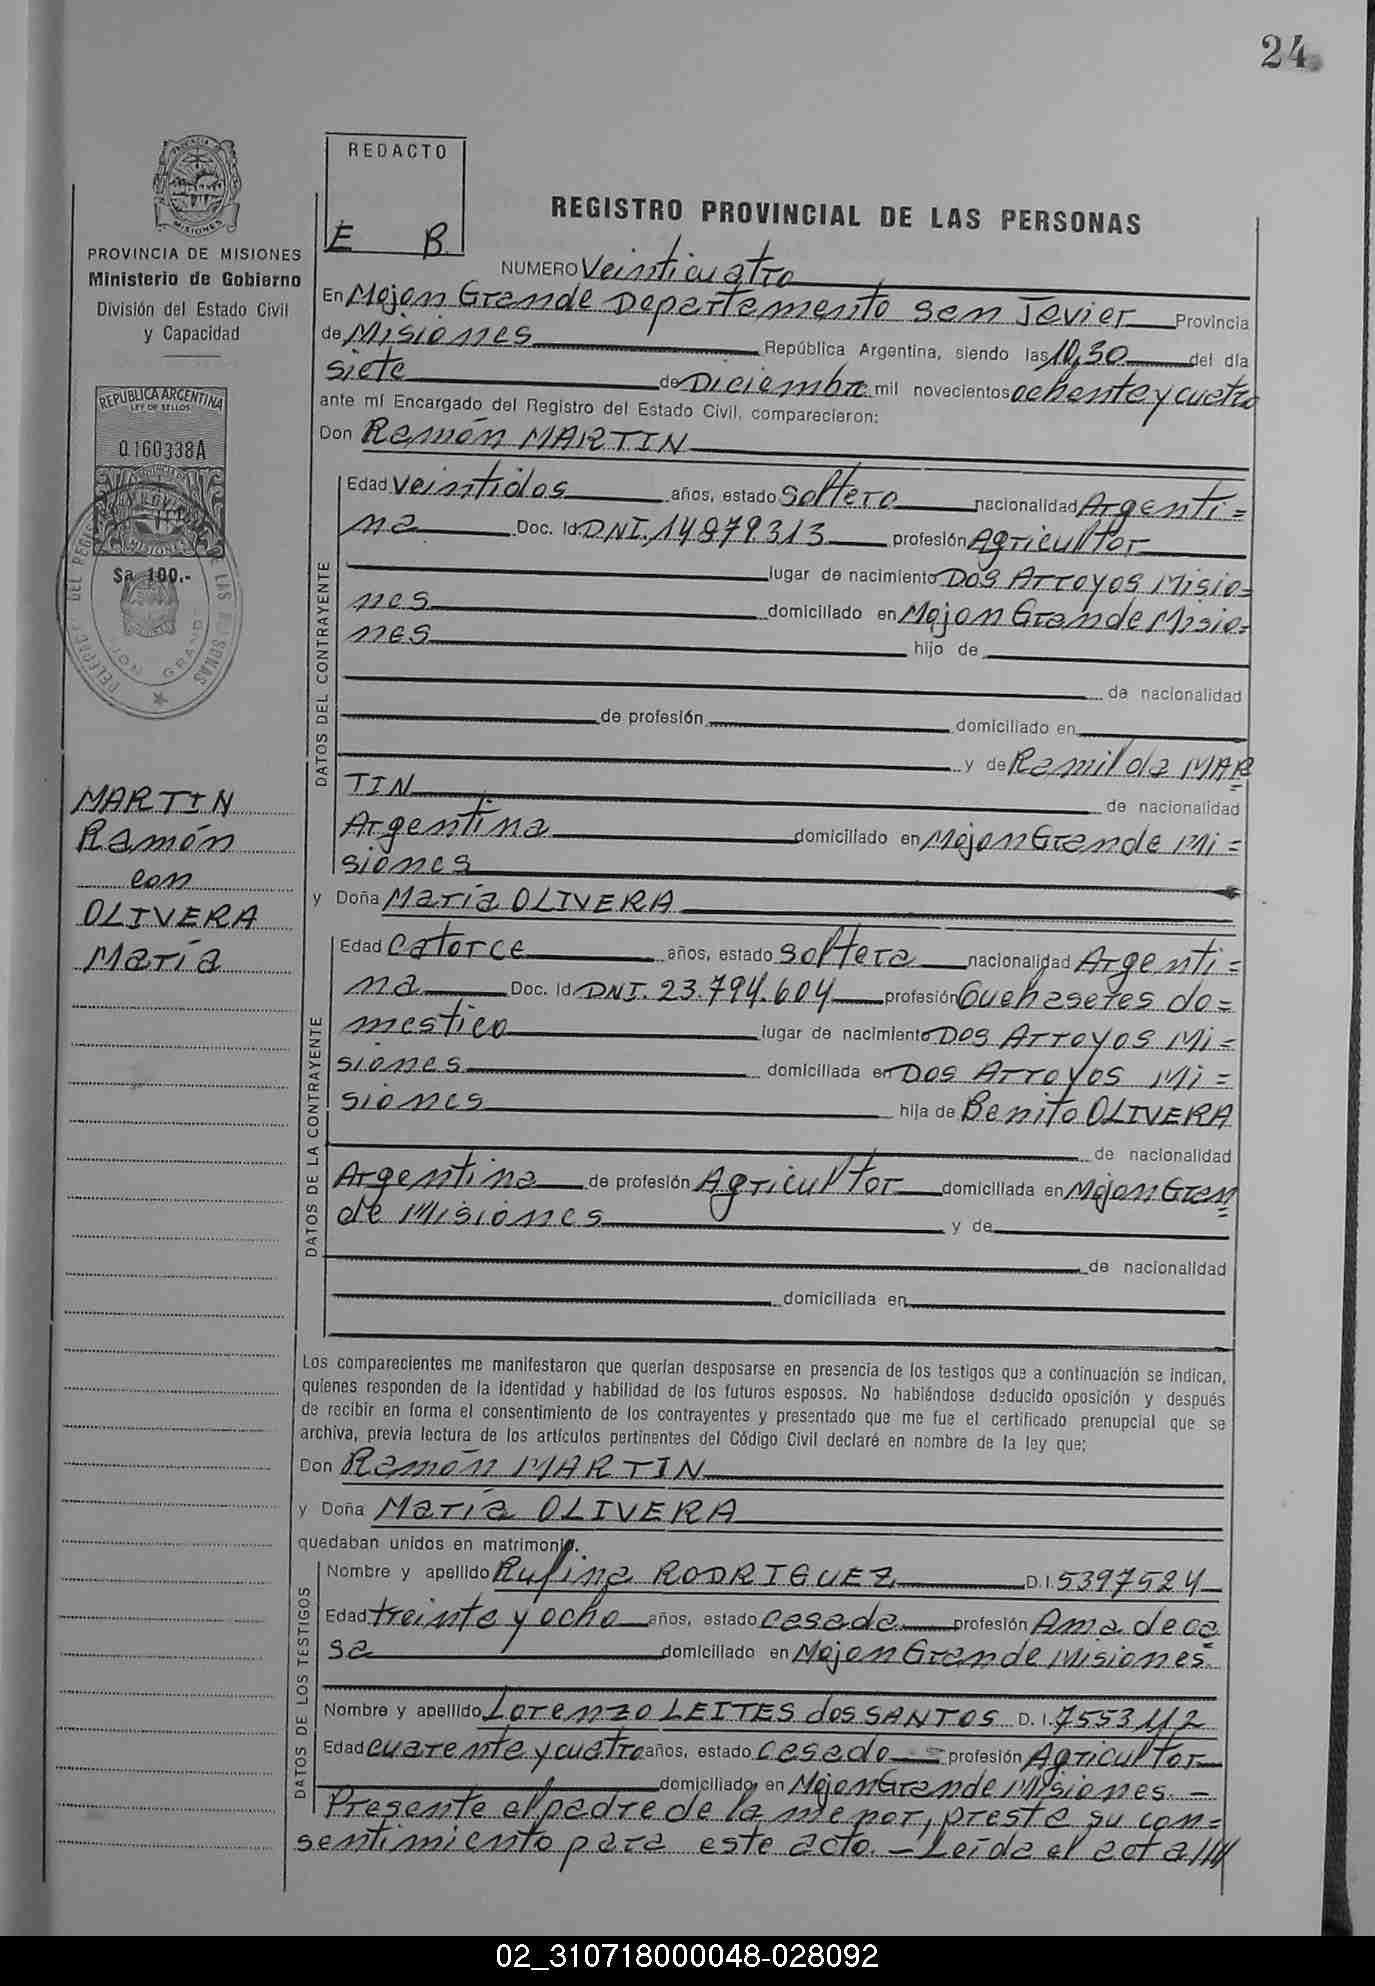 24
REDACTO
E B.
PROVINCIA DE MISIONES
Ministerio de Gobierno
División del Estado Civil
y Capacidad
REPUBLICA ARGENTINA
LEY DE SELLOS
0160338A
MISIONES
$a 100.-
MARTIN
Ramón
con
OLIVERA
María
REGISTRO PROVINCIAL DE LAS PERSONAS
NUMERO Veinticuatro
En Mojon Grande Departamento San Javier Provincia
de Misiones República Argentina, siendo las 10,30 del día
siete de Diciembre mil novecientos ochenta y cuatro
ante mí Encargado del Registro del Estado Civil, comparecieron:
Don Ramón MARTIN
DATOS DEL CONTRAYENTE
Edad veintidos años, estado soltero nacionalidad Argenti=
na Doc. Id DNI. 14879313 profesión Agricultor
lugar de nacimiento Dos Arroyos Misio=
nes domiciliado en Mojon Grande Misio=
nes hijo de
de nacionalidad
de profesión domiciliado en
y de Ramilda MAR
TIN de nacionalidad
Argentina domiciliado en Mojon Grande Mi=
siones
y Doña María OLIVERA
DATOS DE LA CONTRAYENTE
Edad catorce años, estado soltera nacionalidad Argenti=
na Doc. Id DNI. 23.794.604 profesión Quehaseres do=
mestico lugar de nacimiento Dos Arroyos Mi=
siones domiciliada en Dos Arroyos Mi=
siones hija de Benito OLIVERA
de nacionalidad
Argentina de profesión Agricultor domiciliada en Mojon Gran
de Misiones y de
de nacionalidad
domiciliada en
Los comparecientes me manifestaron que querían desposarse en presencia de los testigos que a continuación se indican,
quienes responden de la identidad y habilidad de los futuros esposos. No habiéndose deducido oposición y después
de recibir en forma el consentimiento de los contrayentes y presentado que me fue el certificado prenupcial que se
archiva, previa lectura de los artículos pertinentes del Código Civil declaré en nombre de la ley que:
Don Ramón MARTIN
y Doña María OLIVERA
quedaban unidos en matrimonio.
DATOS DE LOS TESTIGOS
Nombre y apellido Rufina RODRIGUEZ D.I. 5397524
Edad treinta y ocho años, estado casada profesión Ama de ca
sa domiciliado en Mojon Grande Misiones.
Nombre y apellido Lorenzo LEITES dos SANTOS D. I. 7553112
Edad cuarenta y cuatro años, estado casado profesión Agricultor
domiciliado en Mojon Grande Misiones. -
Presente el padre de la menor, presta su con=
sentimiento para este acto. - Leída el acta ///
02_310718000048-028092